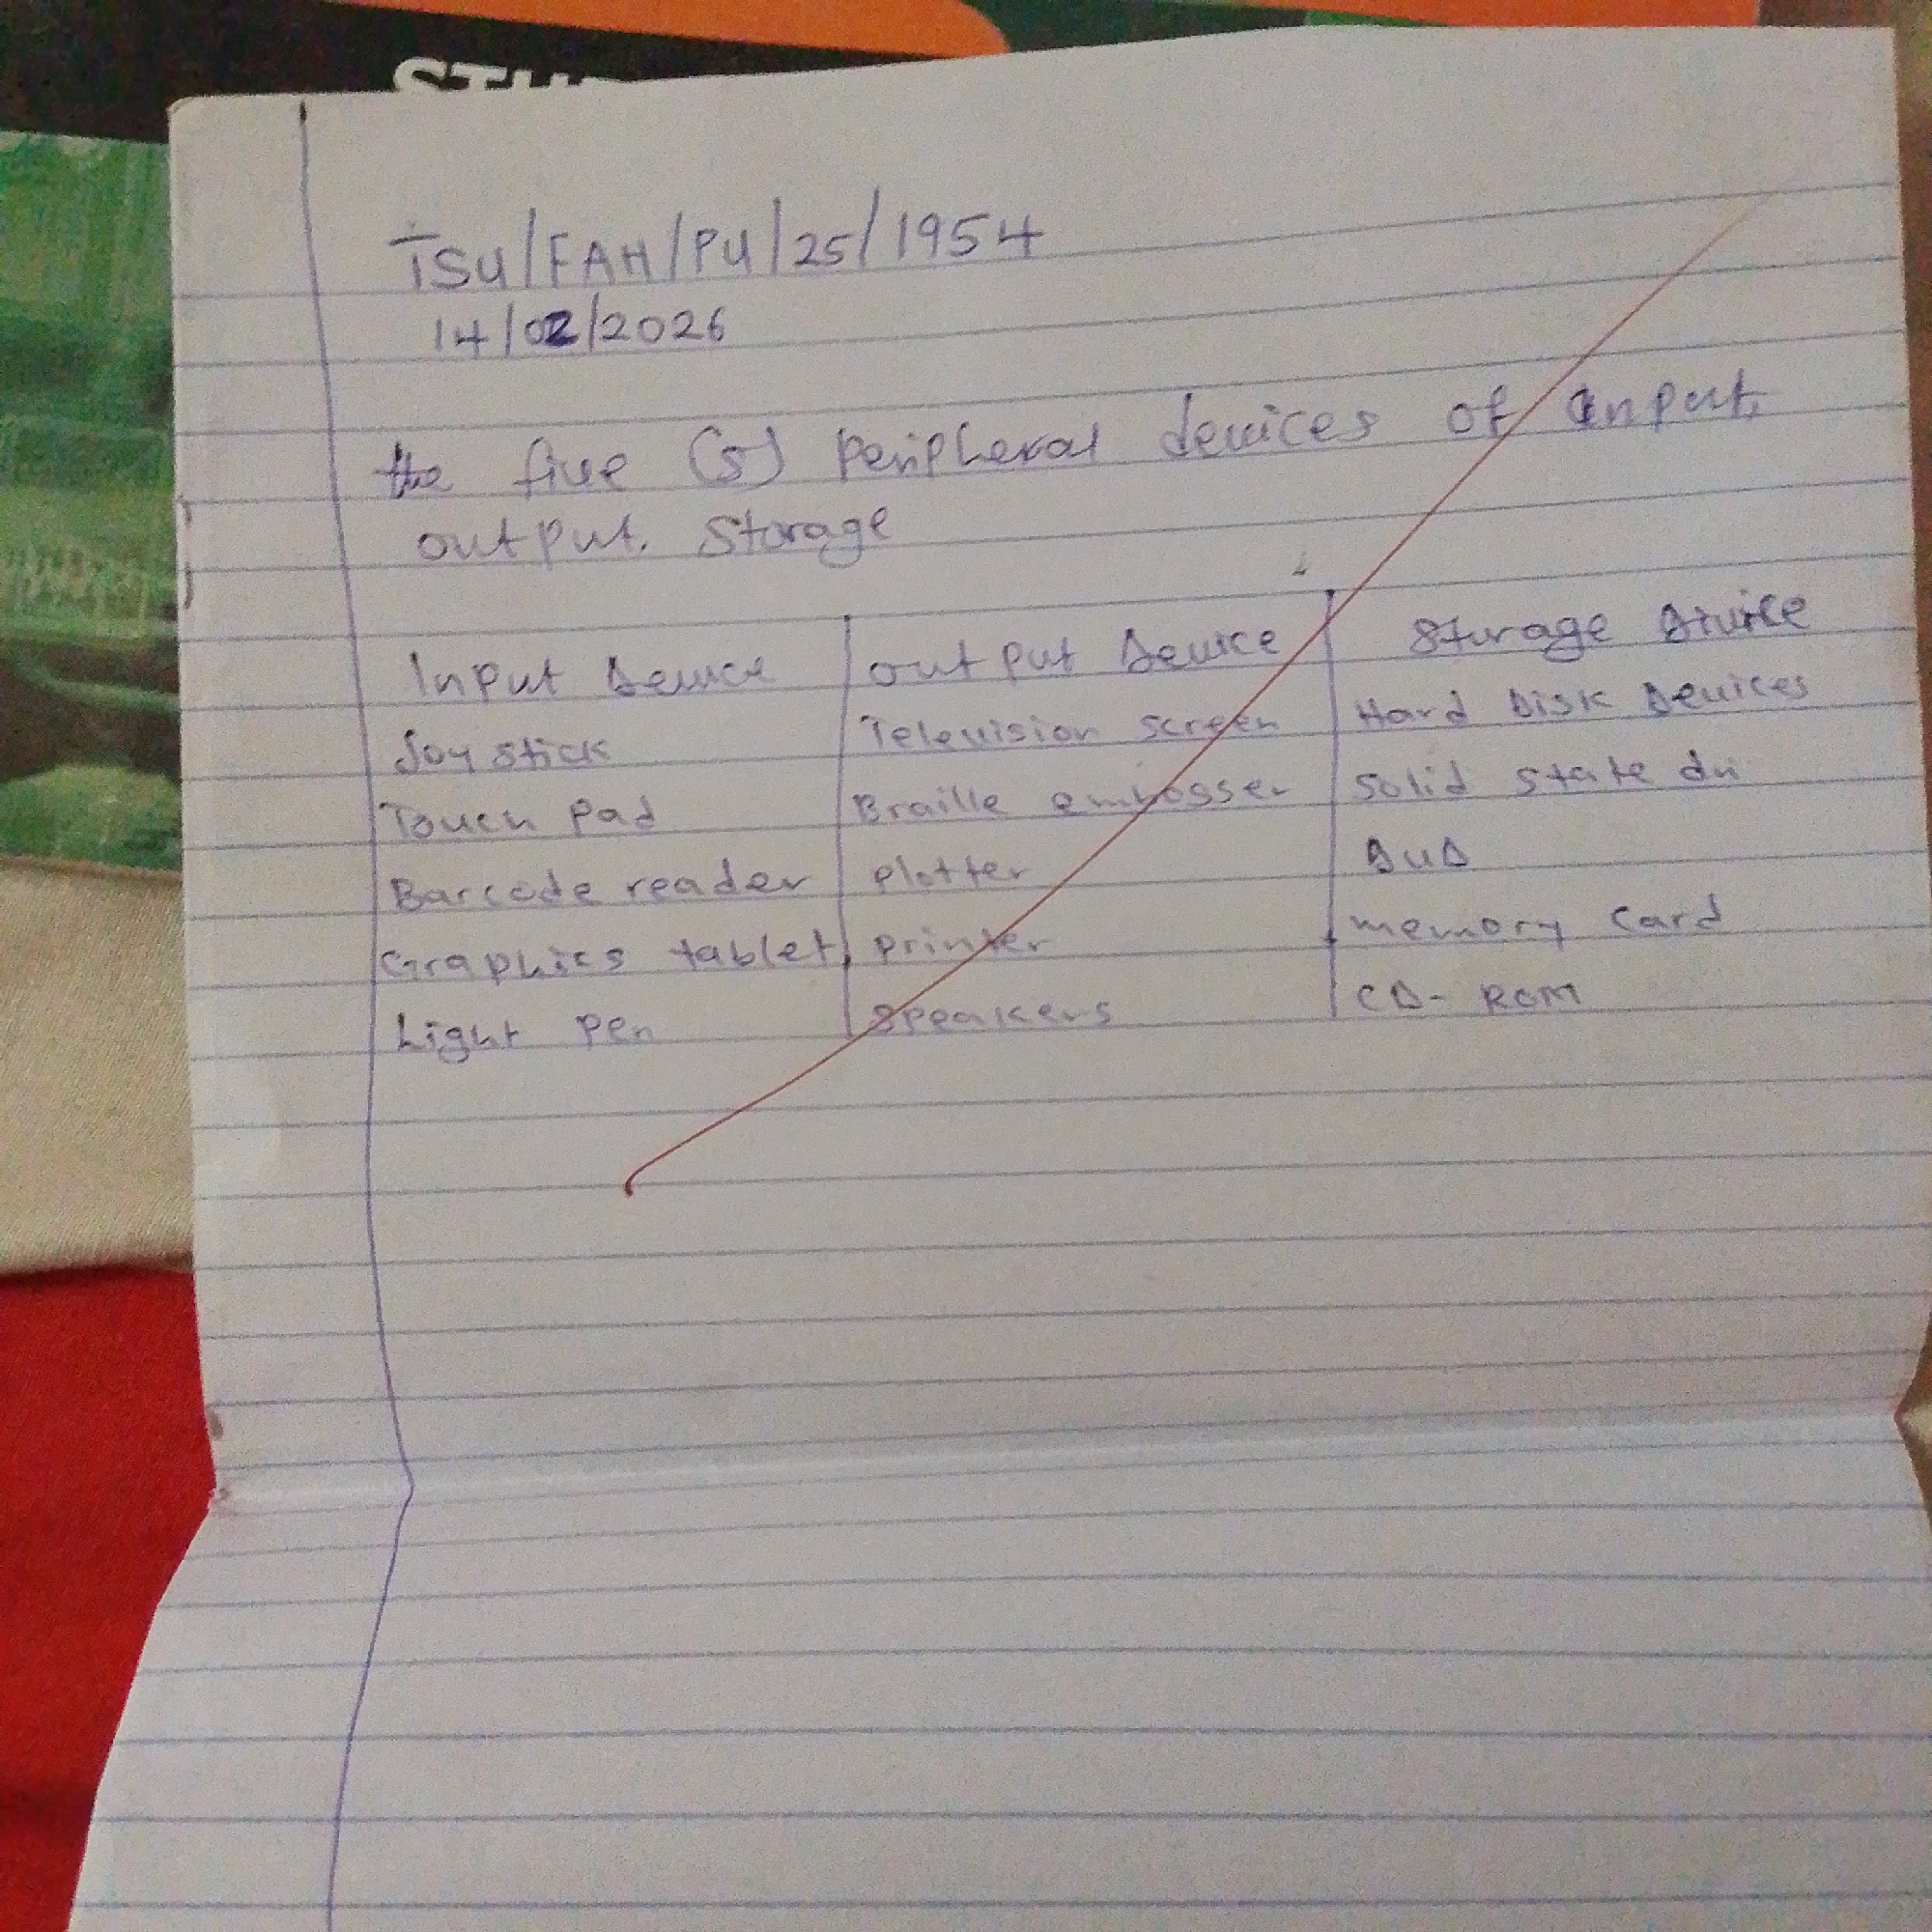 TSU/FAH/PU/25/1954
14/02/2026
the five (5) Peripheral devices of input,
output. Storage
Input Device | output Device | Storage Divice
Joy stick | Television screen | Hard Disk Devices
Touch Pad | Braille embosser | Solid state dri
Barcode reader | Plotter | DVD
Graphics tablet | Printer | memory card
Light Pen | Speakers | CD-ROM